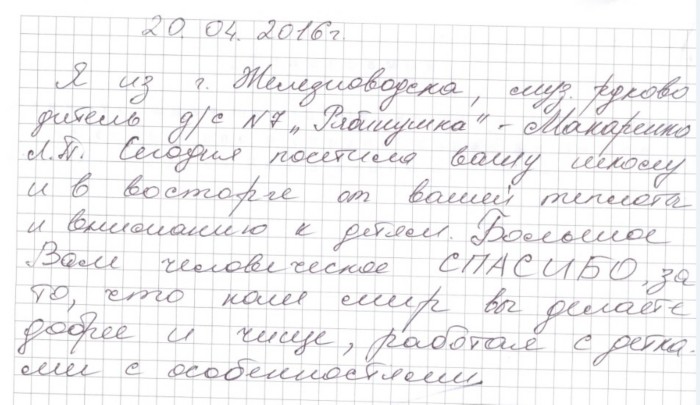 20.04.2016г.
Я из г. Железноводска, муз. руково
дитель д/с №7 „Рябинушка" - Макаренко
Л.П. Сегодня посетила вашу школу
и в восторге от вашей теплоты
и вниманию к детям. Большое
Вам человеческое СПАСИБО, за
то, что наш мир вы делаете
добрее и чище, работая с детка-
ми с особенностями.